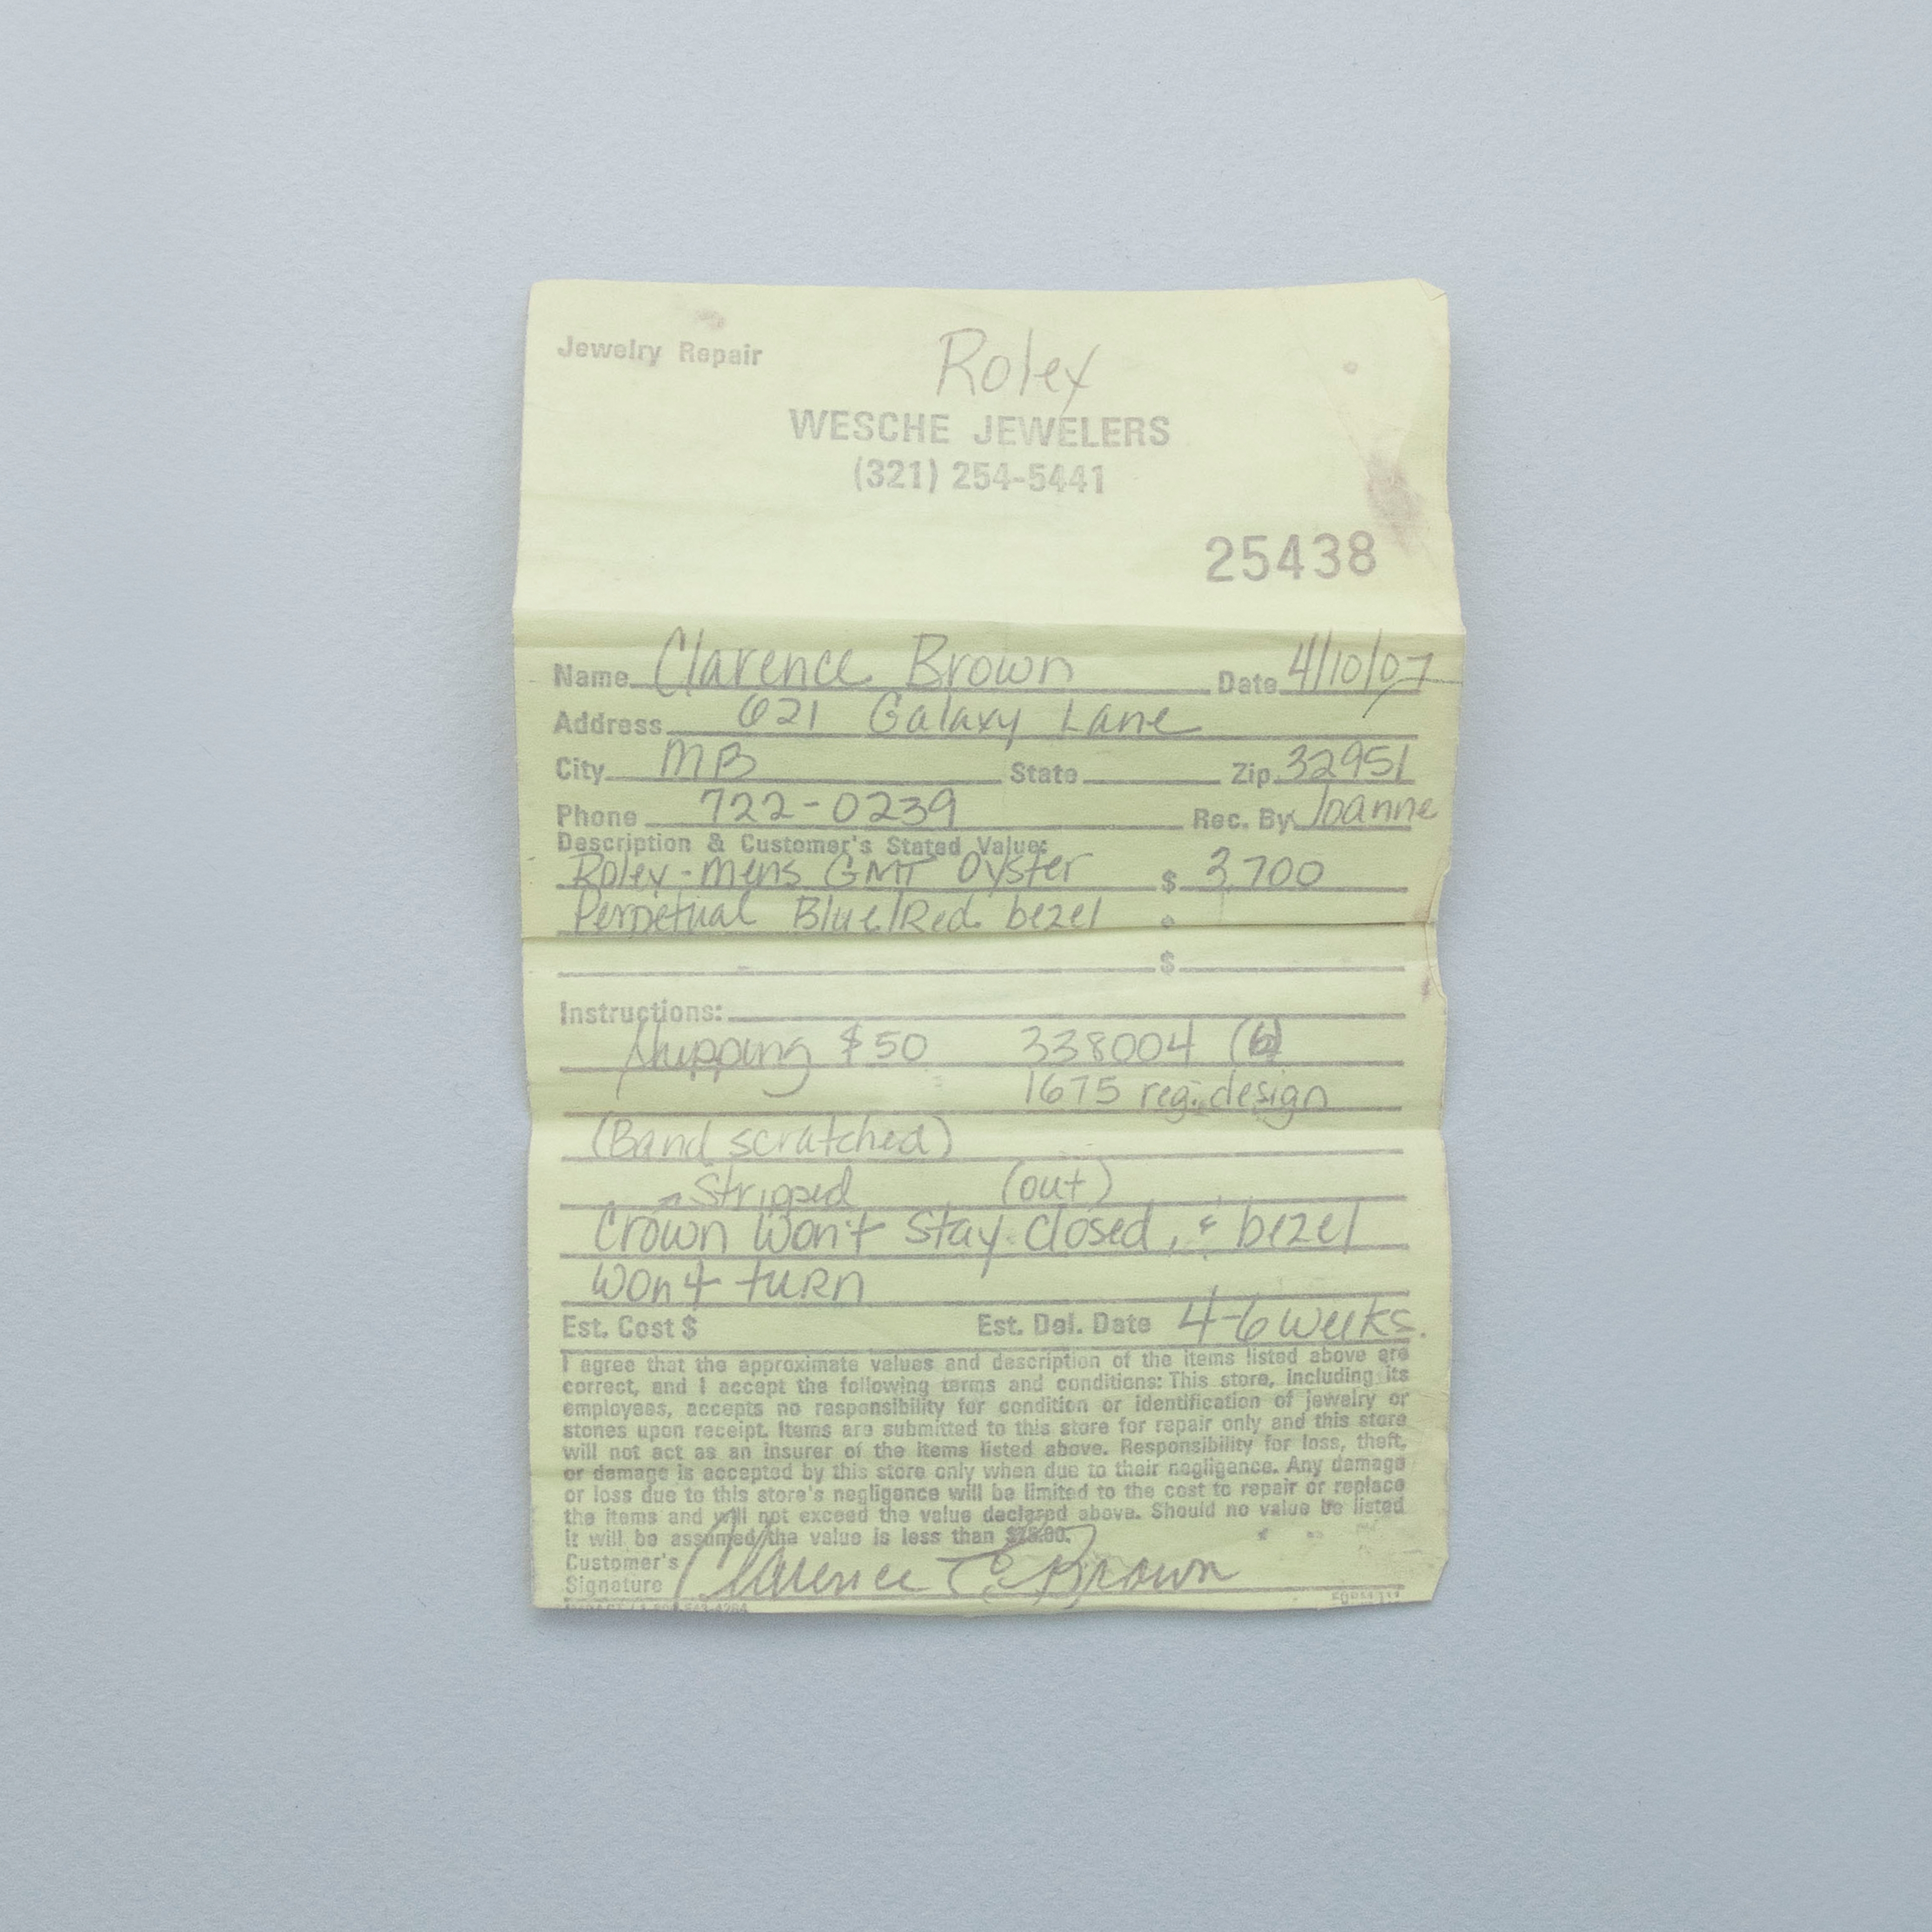 Jewelry Repair
Rolex
WESCHE JEWELERS
(321) 254-5441
25438
Name Clarence Brown Date 4/10/07
Address 621 Galaxy Lane
City MB State Zip 32951
Phone 722-0239 Rec. By Joanne
Description & Customer's Stated Value:
Rolex - mens GMT Oyster $ 3,700
Perpetual Blue/Red bezel
$
Instructions:
Shipping $50 338004 (6)
1675 reg. design
(Band scratched)
Stripped (out)
Crown Won't Stay closed, & bezel
Won't turn
Est. Cost $ Est. Del. Date 4-6 weeks.
I agree that the approximate values and description of the items listed above are
correct, and I accept the following terms and conditions: This store, including its
employees, accepts no responsibility for condition or identification of jewelry or
stones upon receipt. Items are submitted to this store for repair only and this store
will not act as an insurer of the items listed above. Responsibility for loss, theft,
or damage is accepted by this store only when due to their negligence. Any damage
or loss due to this store's negligence will be limited to the cost to repair or replace
the items and will not exceed the value declared above. Should no value be listed
it will be assumed the value is less than $25.00.
Customer's
Signature Clarence E. Brown